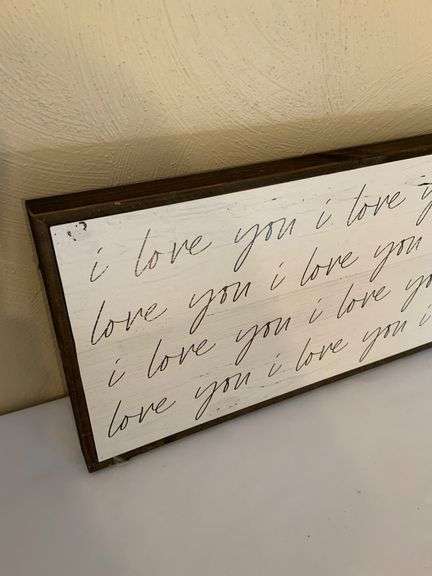 i love you i love
love you i love you
i love you i love
love you i love you i